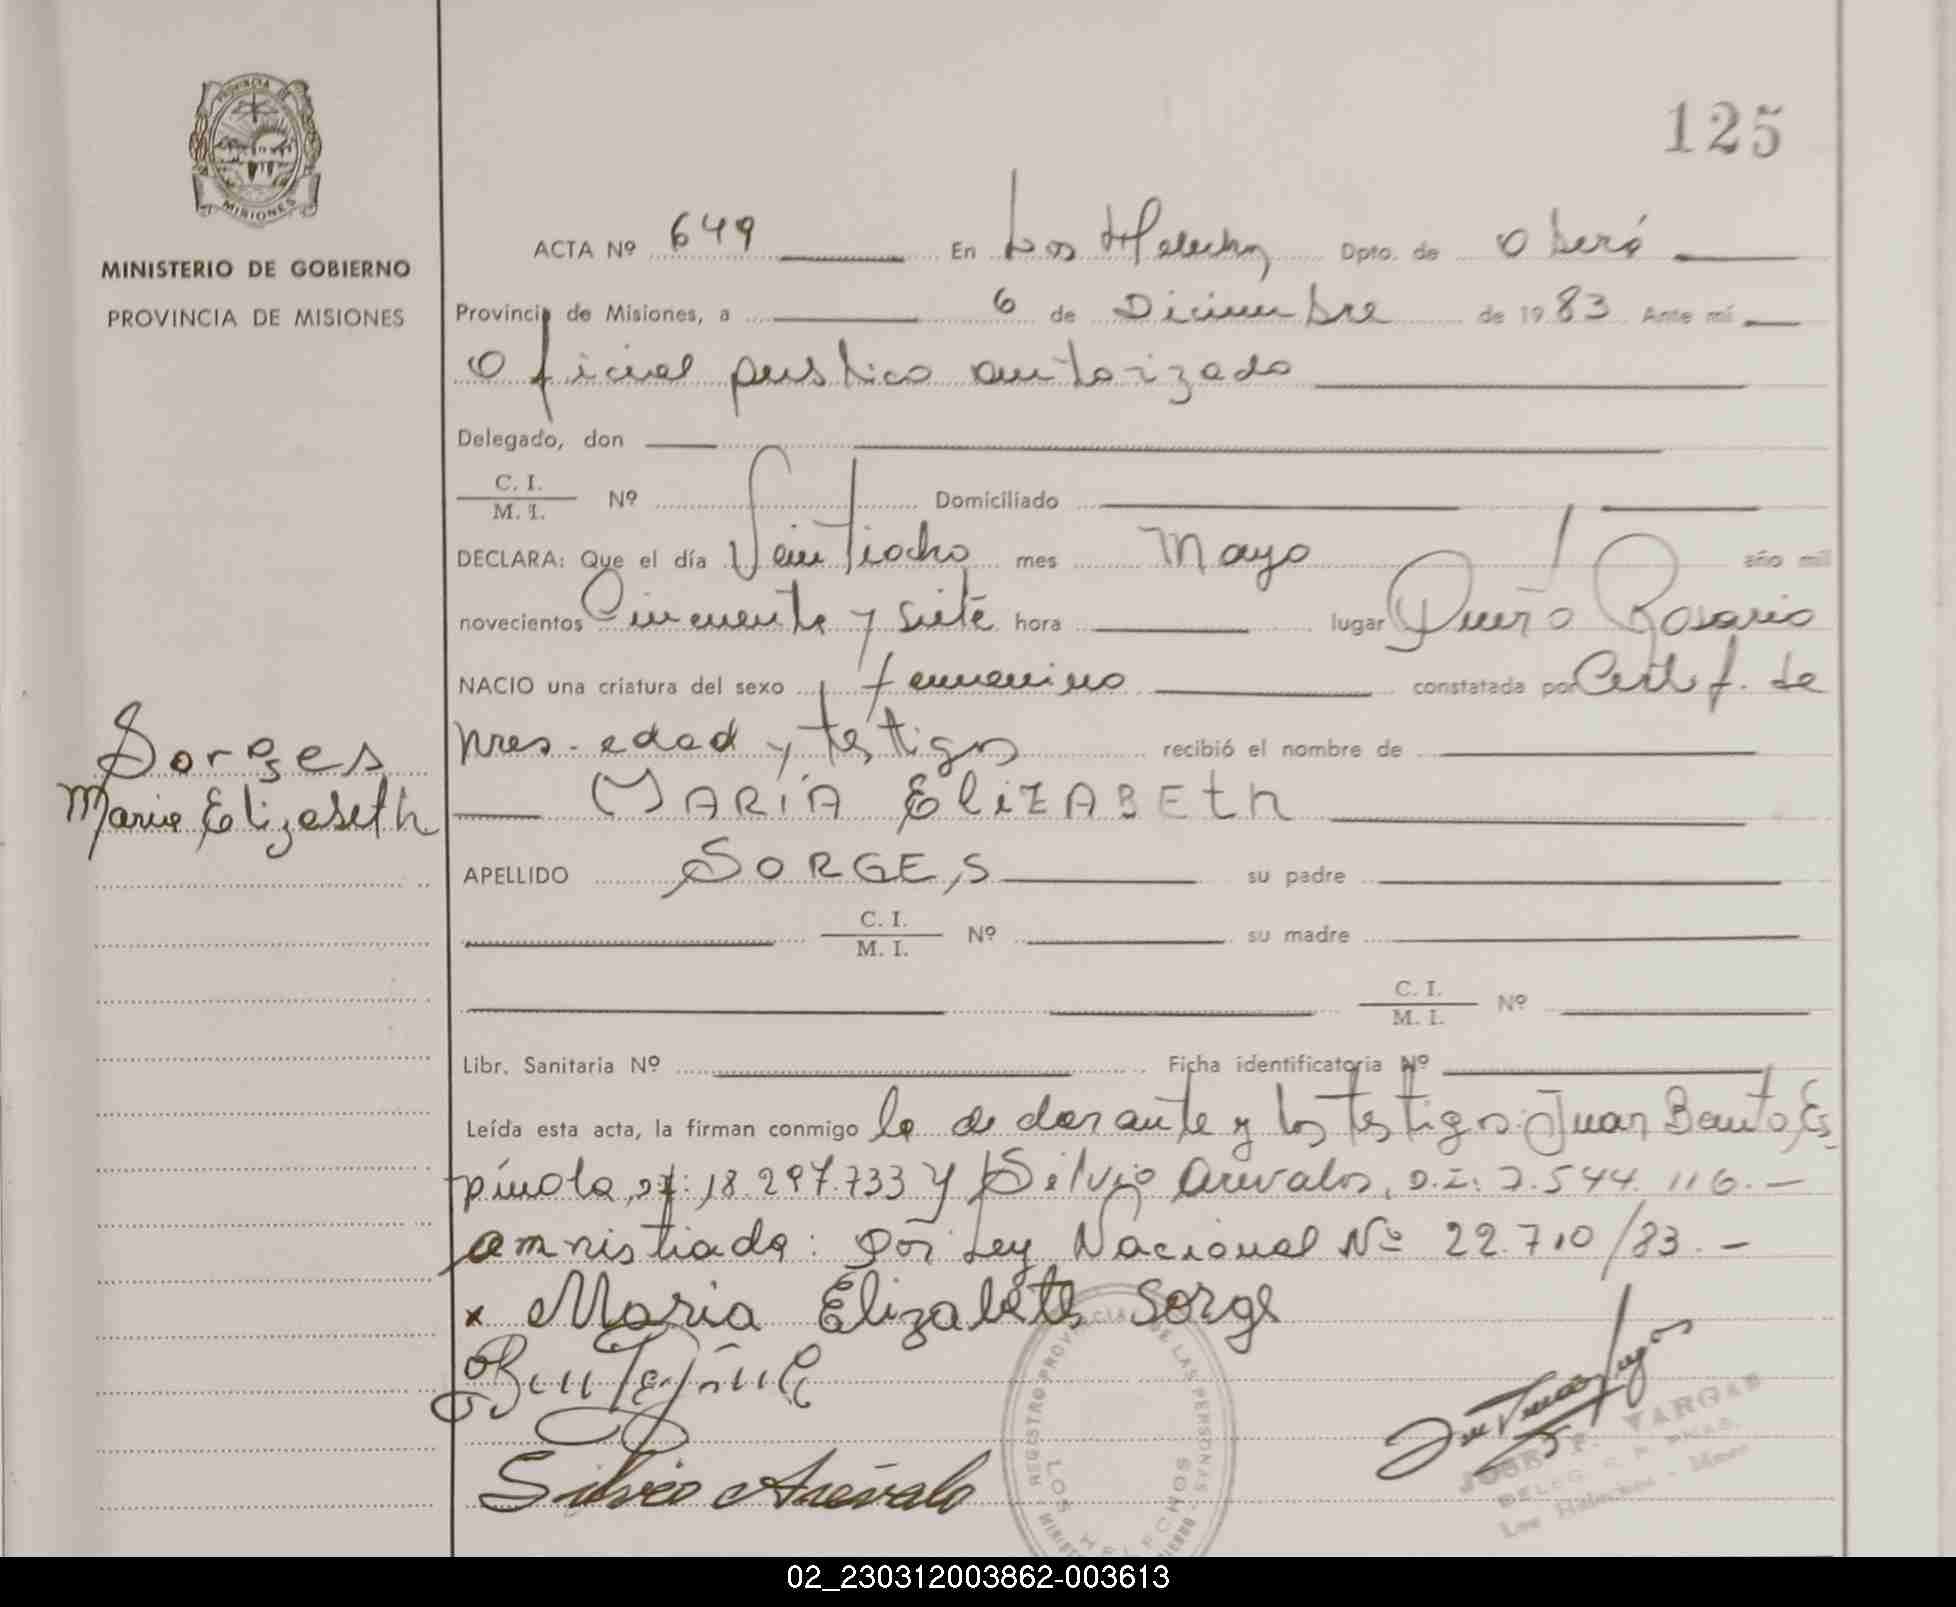 PROVINCIA DE
MISIONES
MINISTERIO DE GOBIERNO
PROVINCIA DE MISIONES
125
ACTA Nº 649 En Los Helechos Dpto. de Oberá
Provincia de Misiones, a 6 de Diciembre de 1983 Ante mí
Oficial publico autorizado
Delegado, don
C. I.
M. I.
Nº Domiciliado
DECLARA: Que el día Veintiocho mes Mayo año mil
novecientos Cincuenta y siete hora lugar Puerto Rosario
NACIO una criatura del sexo femenino constatada por Certif. de
pres. edad y testigos recibió el nombre de
Sorges
Maria Elizabeth
MARÍA ElIZABEth
APELLIDO SORGES su padre
C. I.
M. I.
Nº su madre
C. I.
M. I.
Nº
Libr. Sanitaria Nº Ficha identificatoria Nº
Leída esta acta, la firman conmigo la declarante y los testigos: Juan Benito Es
pínola, 18.297.733 y Silvio Arevalos, D.I: 7.544.116.-
amnistiada: por Ley Nacional Nº 22.710/83.-
x Maria Elizabeth Sorge
Silvio Arévalo
REGISTRO PROVINCIAL DE LAS PERSONAS
LOS HELECHOS
JORGE F. VARGAS
Los Helechos - Mnes
02_230312003862-003613